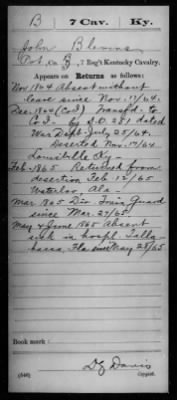 B | 7 Cav. | Ky.
John Blevins
Pvt., Co. , 7 Reg't Kentucky Cavalry.
Appears on Returns as follows:
Nov. 1864 Absent without
leave since Nov. 17/64.
Dec. 1864 (Co. I) Transfd. to
Co. I by S.O. 281 dated
War Dept. July 25/64.
Deserted Nov. 17/64
Louisville Ky.
Feb. 1865 Returned from
desertion Feb. 12/65
Waterloo, Ala.
Mar. 1865 Div. Train Guard
since Mar. 27/65
May & June 1865 Absent
sick in hospl. Talla-
hassee, Fla. since May 28/65
Book mark:
D. Z. Davis
(546) Copyist.